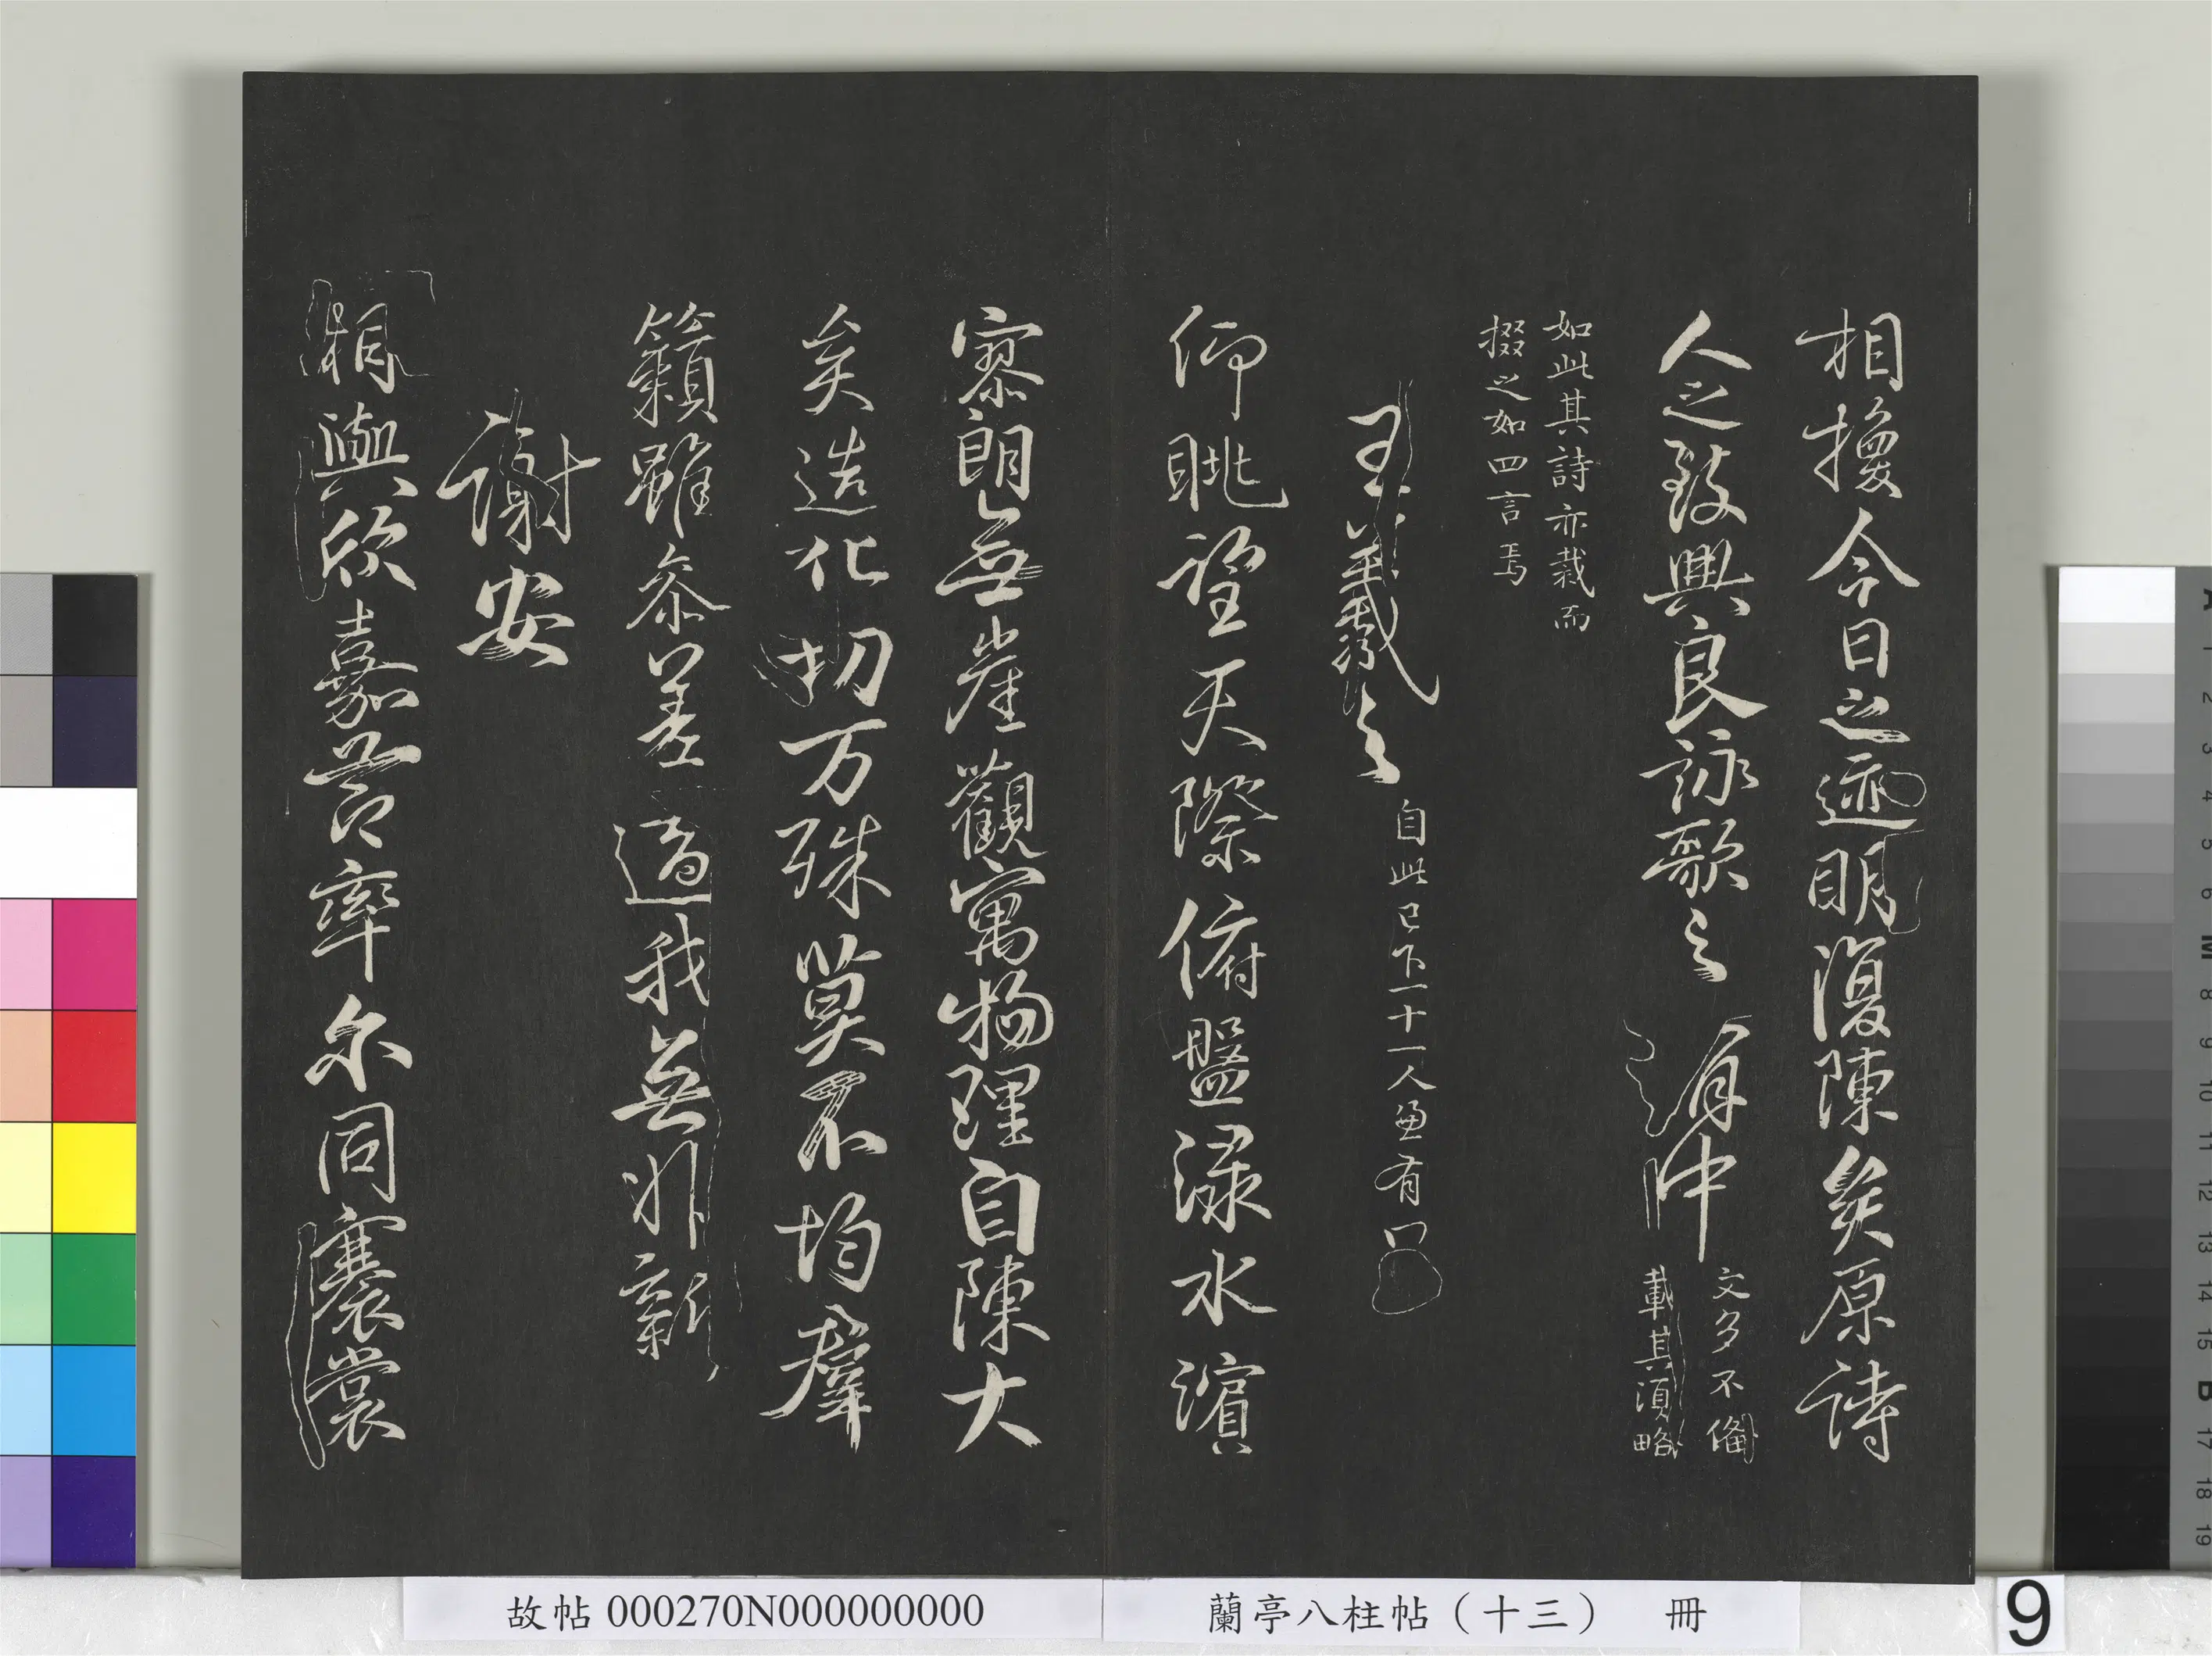 相換今日之迹明復陳矣原詩
人之致興良詠歌之有由
文多不備
載其湏略
如此其詩亦裁而
掇之如四言焉
王羲之
自此已下十一人並有
仰眺望天際俯盤淥水濱
寥朗無崖觀寓物理自陳大
矣造化切万殊莫不均羣
籟雖參差適我無非新
謝安
相與欣嘉莭率尔同褰裳
故帖 000270N000000000
蘭亭八柱帖（十三） 冊
9